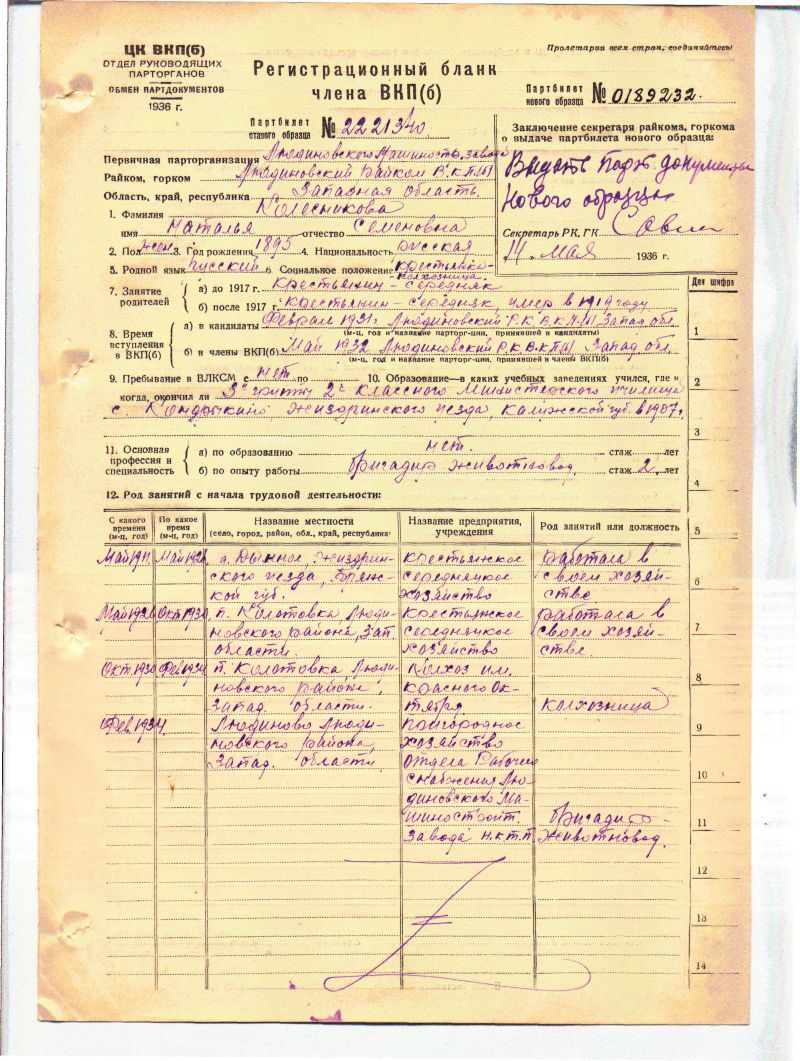 Пролетарии всех стран, соединяйтесь!
ЦК ВКП(б)
ОТДЕЛ РУКОВОДЯЩИХ
ПАРТОРГАНОВ
ОБМЕН ПАРТДОКУМЕНТОВ
1936 г.
Регистрационный бланк
члена ВКП(б)
Партбилет
нового образца № 0189232.
Партбилет
старого образца № 2221340
Заключение секретаря райкома, горкома
о выдаче партбилета нового образца:
Выдать парт. документы
нового образца
Секретарь РК, ГК
14 " мая 1936 г.
Первичная парторганизация Людиновского Машиностр. завода
Райком, горком Людиновский Райком В.К.П./б/
Область, край, республика Западная область.
1. Фамилия Колесникова
имя Наталья отчество Семеновна
2. Пол жен. 3. Год рождения 1895 4. Национальность русская
5. Родной язык русский 6 Социальное положение крестьянка-
колхозница
7. Занятие родителей
а) до 1917 г. Крестьянин - середняк
б) после 1917 г. крестьянин - середняк, умер в 1919 году
8. Время вступления в ВКП(б)
а) в кандидаты Февраль 1931. Людиновский Р.К В.К.П/б/ Запад. обл.
(м-ц, год и название парторг-ции, принявшей в кандидаты)
б) в члены ВКП(б) Май 1932 Людиновский Р.К В.К.П/б/ Запад. обл.
(м-ц, год и название парторг-ции, принявшей в члены ВКП(б)
9. Пребывание в ВЛКСМ с нет по 10. Образование—в каких учебных заведениях учился, где и
когда, окончил ли 3 2х классного Министерского училища
с. Жиздринского уезда, Калужской губ. в 1907 г.
11. Основная профессия и специальность
а) по образованию нет. стаж лет
б) по опыту работы Бригадир животновод стаж 2 лет
12. Род занятий с начала трудовой деятельности:
Для шифра
1
2
3
4
5
6
7
8
9
10
11
12
13
14
С какого времени (м-ц, год) По какое время (м-ц, год) Название местности (село, город, район, обл., край, республика) Название предприятия, учреждения Род занятий или должность
Жиздрин- крестьянское Работала в
ского уезда, Брянс- середняцкое своем хозяй-
кой губ. хозяйство стве
Окт 1930 п. Колотовка, Люди- крестьянское Работала в
новского района, Зап. середняцкое своем хозяй-
области. хозяйство стве.
Окт. 1930 Фев 1934 п. Колотовка, Люди- Колхоз им.
новского района, красного Ок-
Запад. области. тября Колхозница
Фев. 1934. Людиново Люди- Пригородное
новского района, хозяйство
Запад. области отдела Рабочего
снабжения Лю-
диновского Ма-
шиностроит. Бригадир-
завода Н.К.Т.П. животновод.